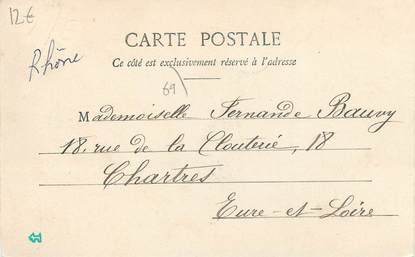 12€
Rhône
CARTE POSTALE
Ce côté est exclusivement réservé à l'adresse
69
Mademoiselle Fernande Bauvy
18, rue de la Clouterie, 18
Chartres
Eure-et-Loire